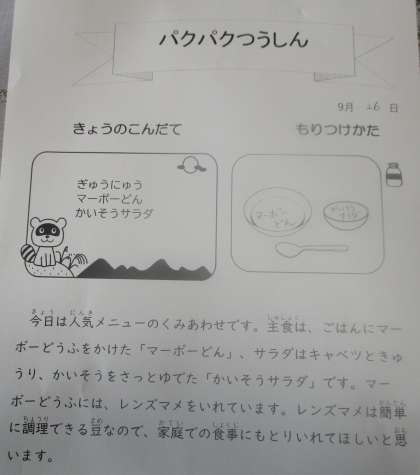 パクパクつうしん
9月 16日
きょうのこんだて
もりつけかた
ぎゅうにゅう
マーボーどん
かいそうサラダ
マーボーどん
かいそうサラダ
今日は人気メニューのくみあわせです。主食は、ごはんにマー
ボーどうふをかけた「マーボーどん」、サラダはキャベツときゅ
うり、かいそうをさっとゆでた「かいそうサラダ」です。マー
ボーどうふには、レンズマメをいれています。レンズマメは簡単
に調理できる豆なので、家庭での食事にもとりいれてほしいと思
います。